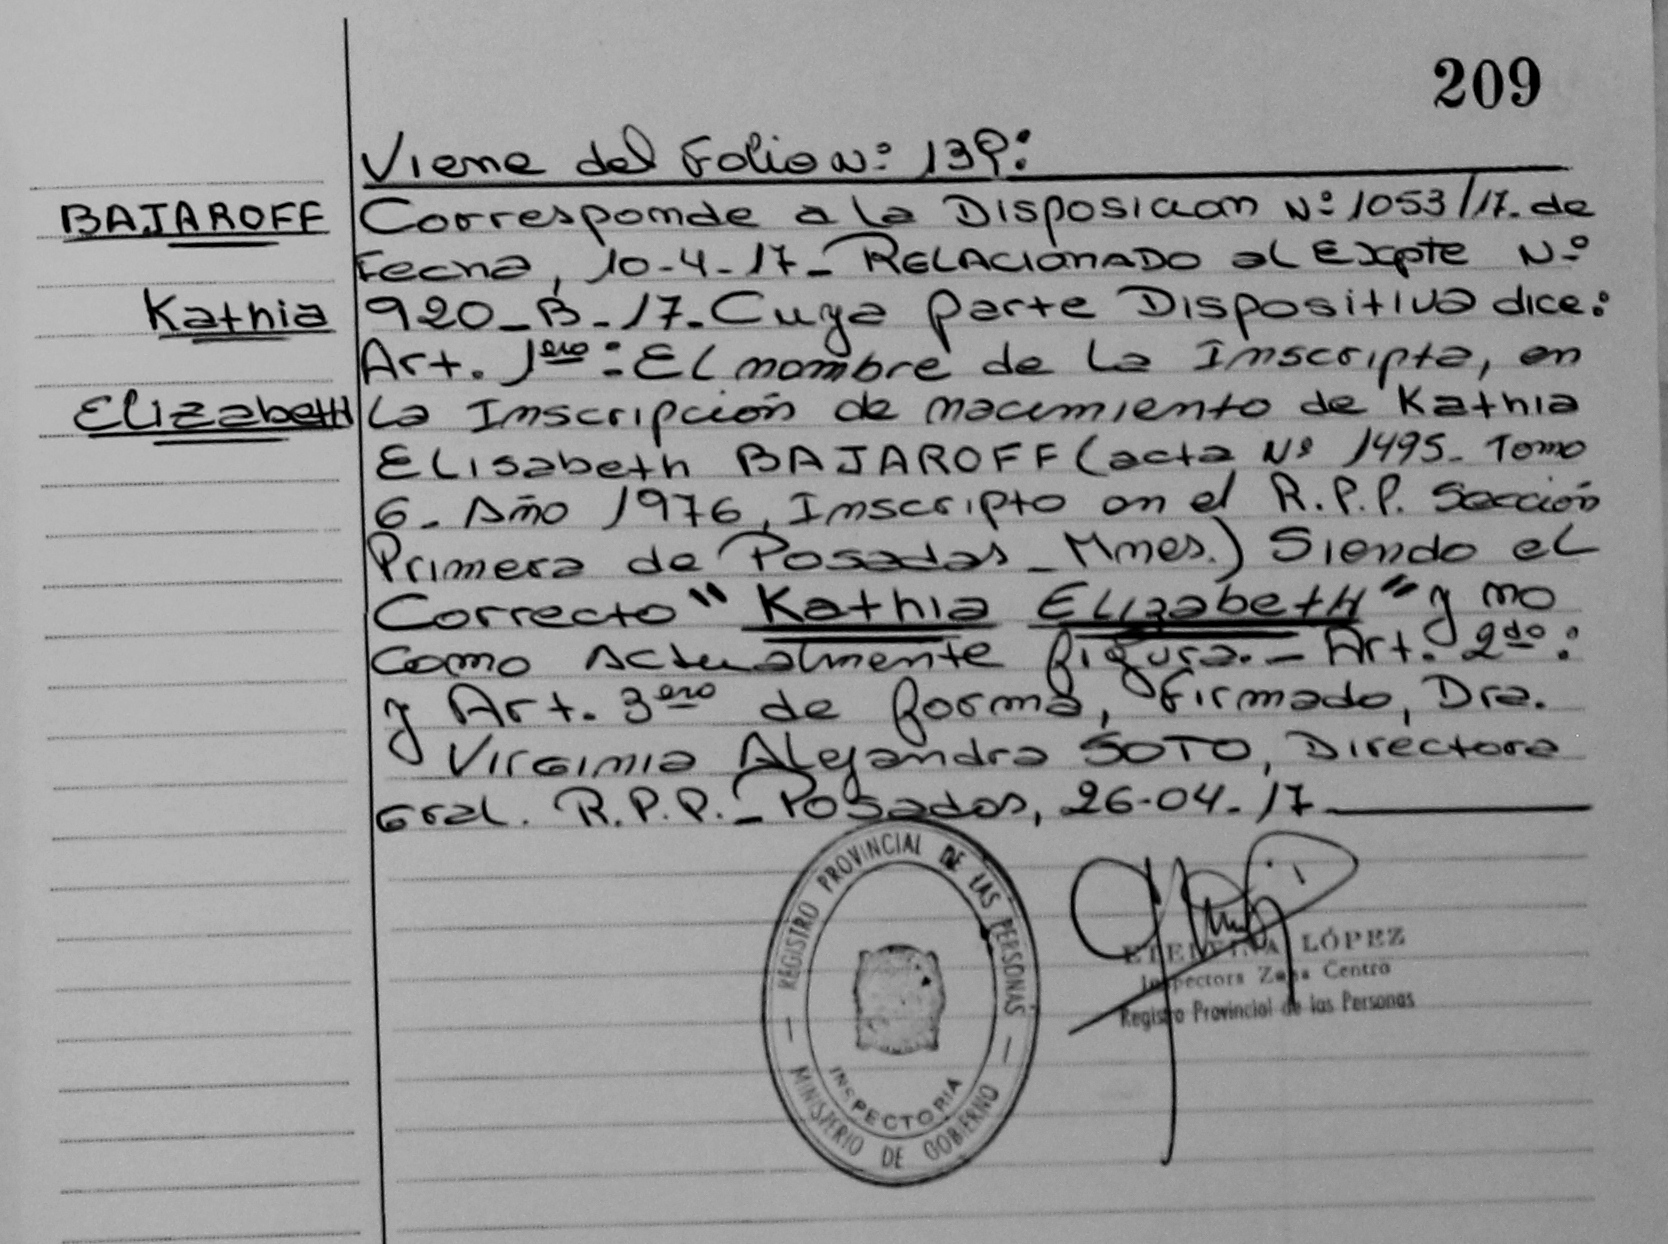 209
Viene del Folio Nº: 139:
BAJAROFF
Kathia
Elizabeth
Corresponde a la Disposicion Nº: 1053/17. de
Fecha, 10-4-17_ RELACIONADO al Expte Nº
920_B_17. Cuya parte Dispositiva dice:
Art. 1ero: El nombre de la Inscripta, en
la Inscripción de nacimiento de Kathia
Elisabeth BAJAROFF (acta Nº 1495_ Tomo
6_ Año 1976, Inscripto en el R.P.P. Sección
Primera de Posadas_ Mnes.) Siendo el
Correcto "Kathia Elizabeth" y no
como Actualmente figura._ Art. 2do:
y Art. 3ero de forma, Firmado, Dra.
Virginia Alejandra SOTO, Directora
Gral. R.P.P._ Posadas, 26-04-17
REGISTRO PROVINCIAL DE LAS PERSONAS
INSPECTORIA
MINISTERIO DE GOBIERNO
LÓPEZ
Inspectora Zona Centro
Registro Provincial de las Personas